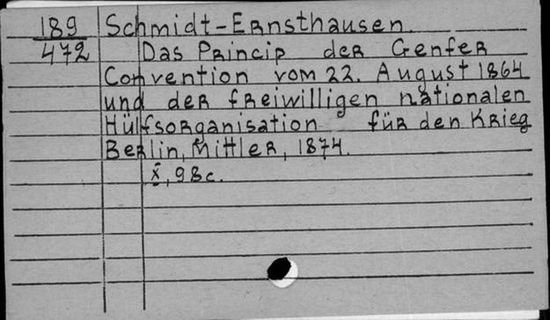 189 Schmidt-Ernsthausen.
472 Das Princip der Genfer
Convention vom 22. August 1864
und der freiwilligen nationalen
Hülfsorganisation für den Krieg
Berlin, Mittler, 1874.
X, 98 c.